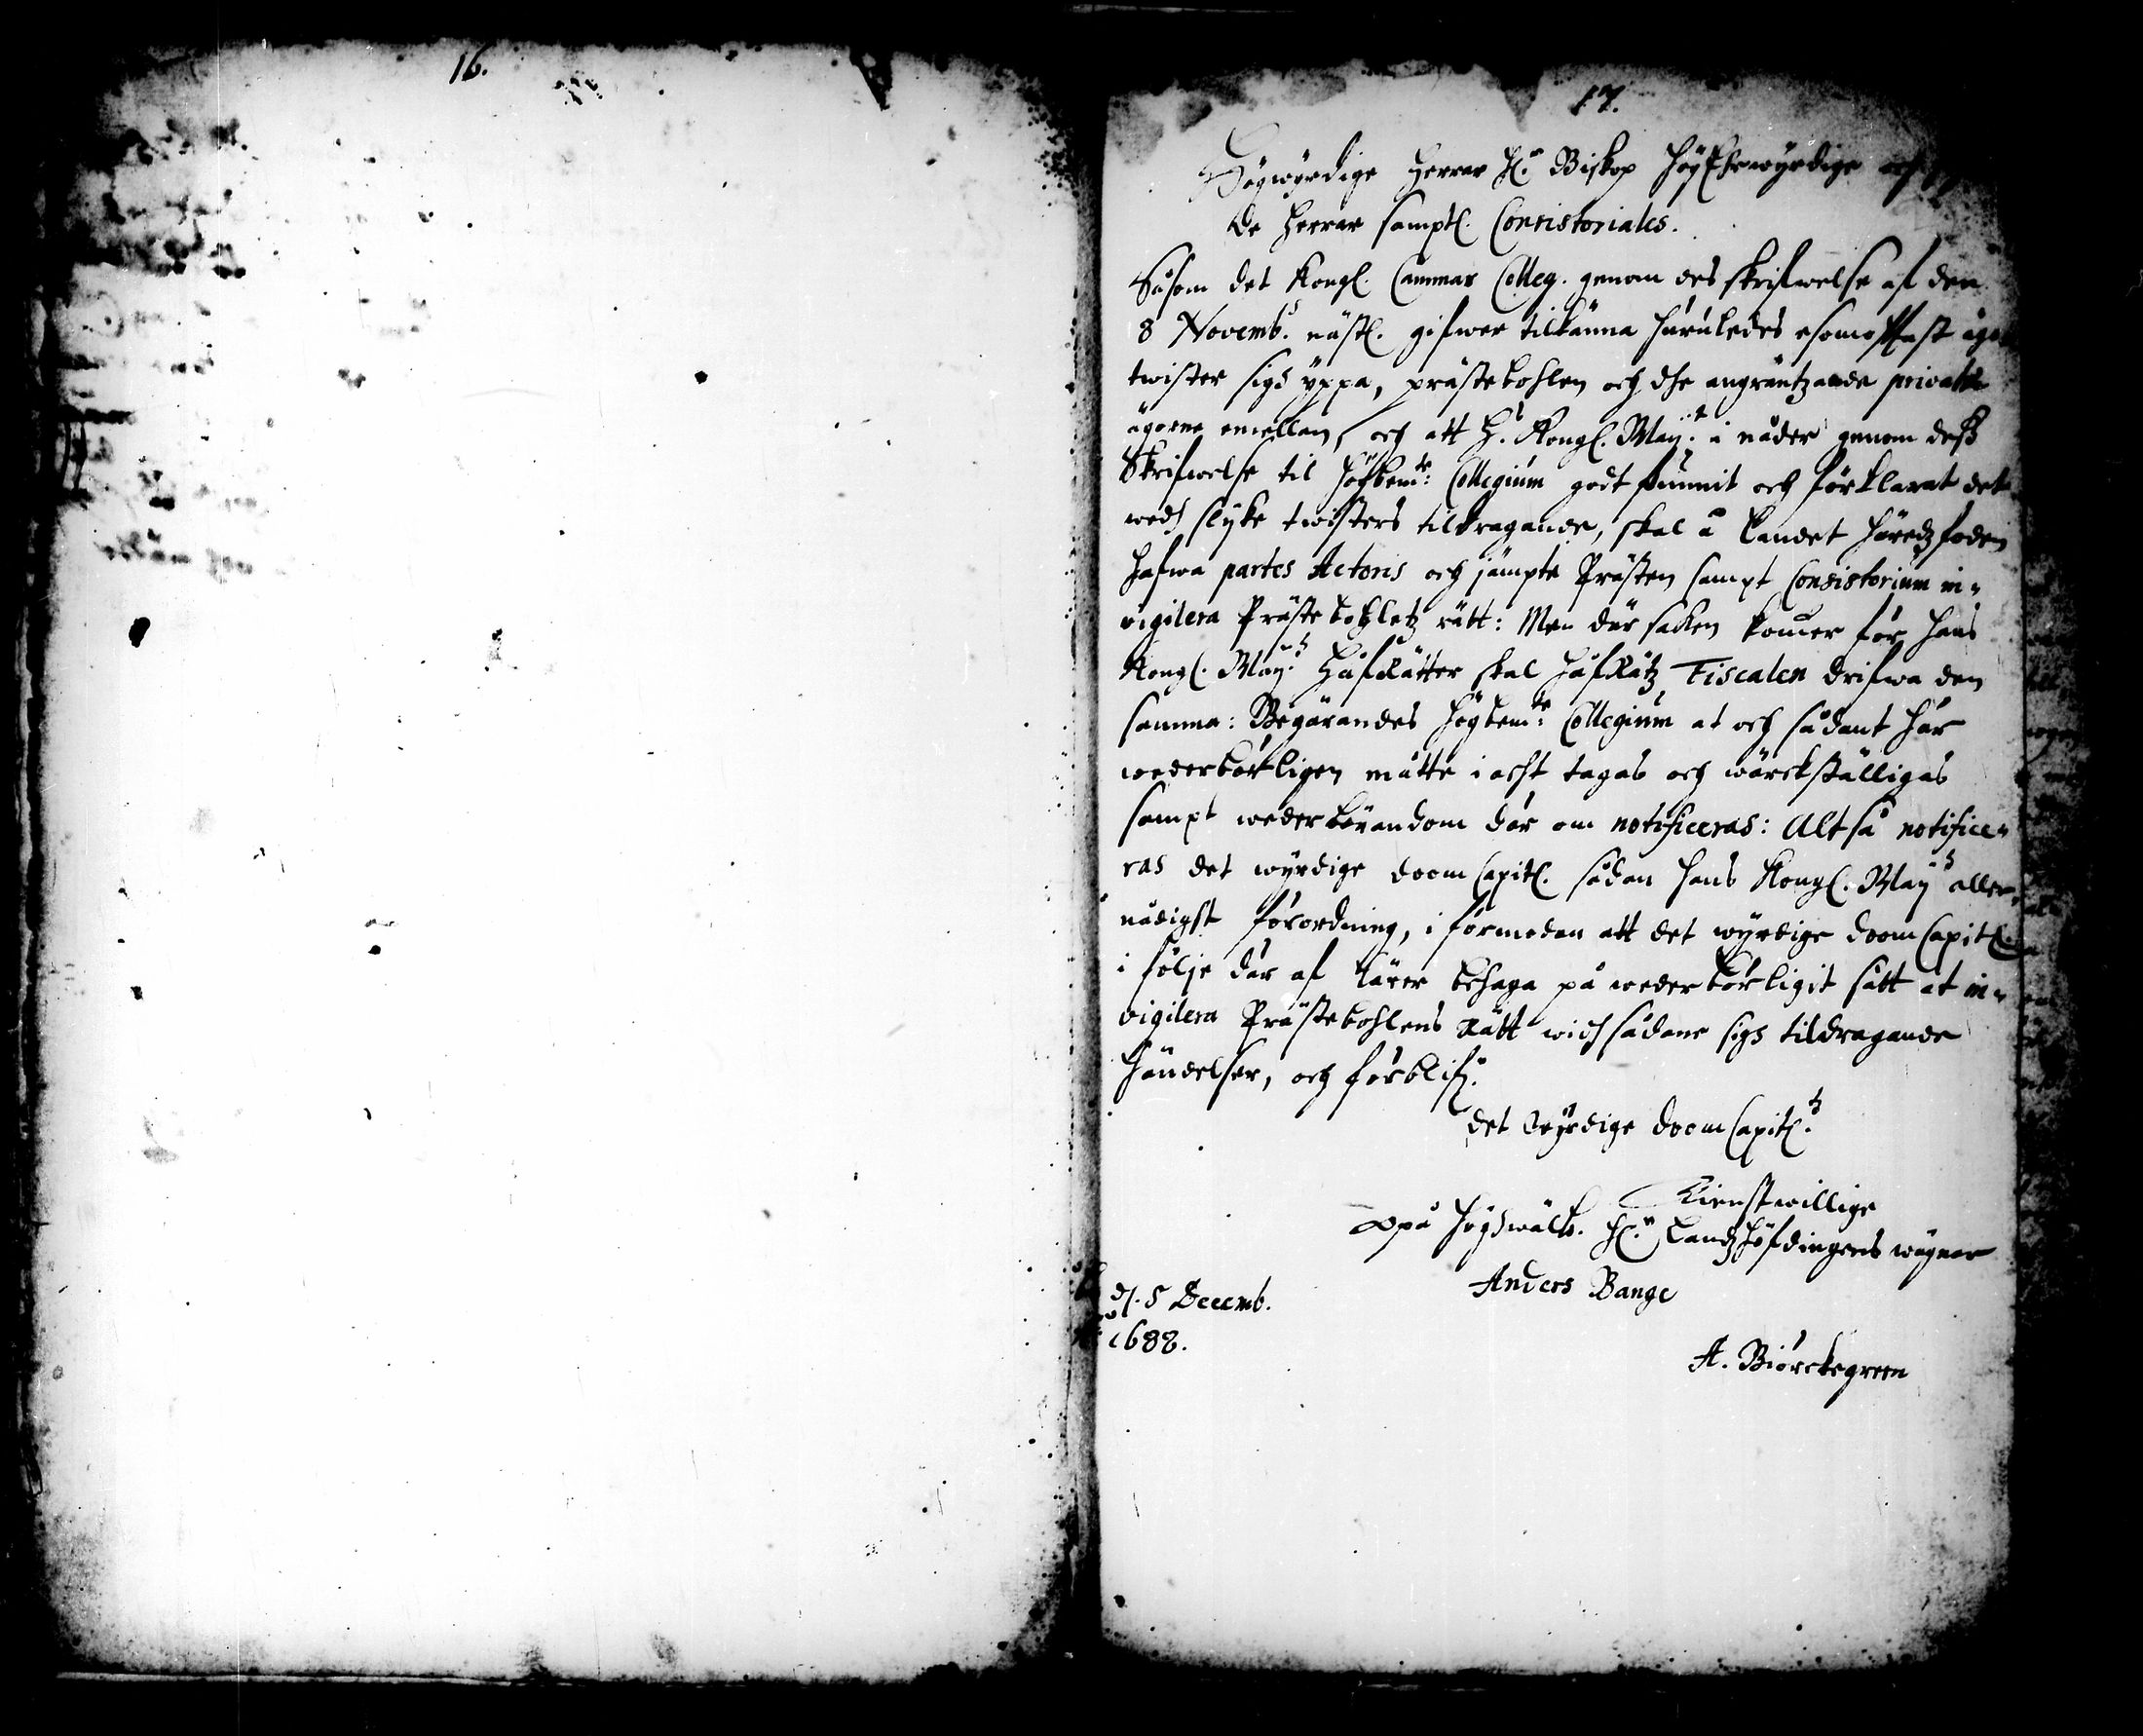 16.
17.
Högwyrdige Herrar H:r Biskop HögEhrewyrdige och
de Herrar sampt:l Consistoriales.
Såsom det Kongl. Cammar Colleg. genom des skrifwelse af den
8 Novemb. näst:l gifwer tilkänna huruledes esomoftast äga
twister sigh yppa, prästebohlen och dhe angräntzande privat
ägorne emellan, och att H. Kongl. Maij:t i nåder genom dess
Skrifwelse til höfbem:te Collegium godt funnit och förklarat det
wedh slyke twisters tildragande, skal å Landet häredzfoden
hafwa partes Actoris och jämpte Prästen sampt Consistorium in-
vigilera Prästebohletz rätt: Men där saken kommer för Hans
Kongl. Maij:tz Håfrätter skal håfrätz Fiscalen drifwa den
samma: Begärandes högbem:te Collegium at och sådant här
wederbörligen måtte i acht tagas och wärckställigas
sampt wederbörandom där om notificeras: Altså notifice-
ras det wyrdige doom Capit:l sådan Hans Kongl. Maij:tz aller-
nådigst förordning, i förmodan att det wyrdige doom Capit:l
i följe där af lärer behaga på wederbörligit sätt at in-
vigilera Prästebohlens Rätt widh sådane sigh tildragande
händelser, och förblif:r
det wyrdige doom Capit:ls
Tienstwillige
Opå Högwälb. H:r Landzhöfdingens wägnar
Anders Bange
d. 5 Decemb.
1688.
A. Biörckegreen